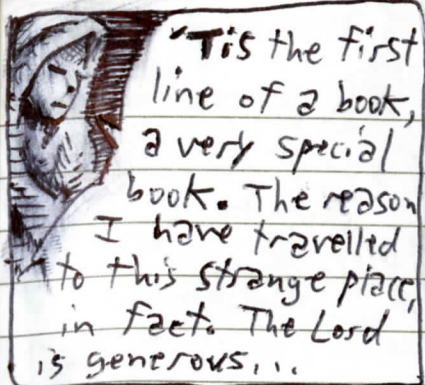 'Tis the first
line of a book,
a very special
book. The reason
I have travelled
to this strange place,
in fact. The Lord
is generous...